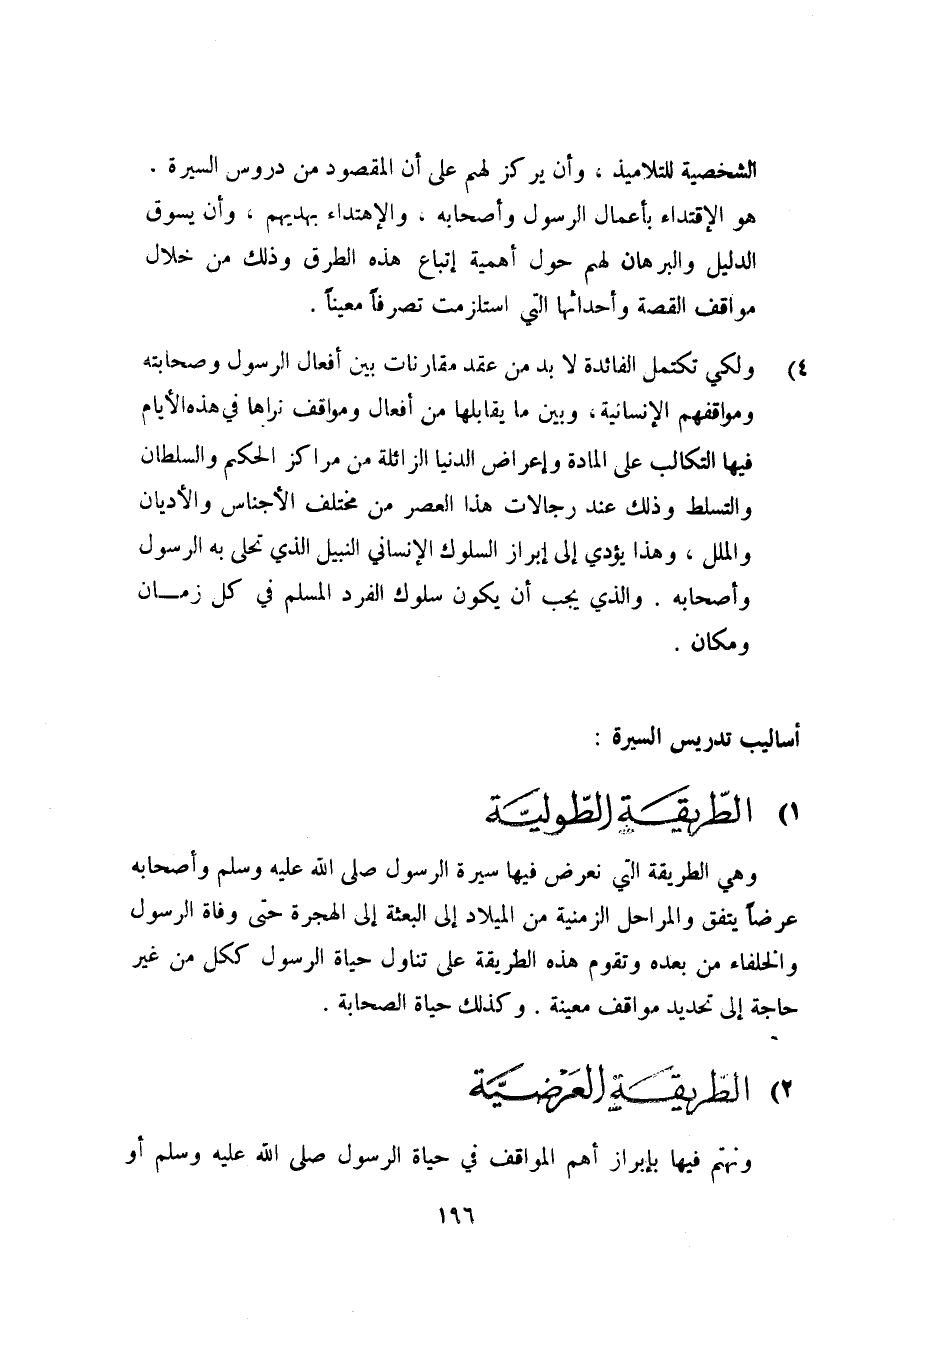 الشخصية للتلاميذ ، وأن يركز لهم على أن المقصود من دروس السيرة .
هو الإقتداء بأعمال الرسول وأصحابه ، والإهتداء بهديهم ، وأن يسوق
الدليل والبرهان لهم حول أهمية إتباع هذه الطرق وذلك من خلال
مواقف القصة وأحداثها التي استلزمت تصرفاً معيناً .
٤) ولكي تكتمل الفائدة لا بد من عقد مقارنات بين أفعال الرسول وصحابته
ومواقفهم الإنسانية ، وبين ما يقابلها من أفعال ومواقف نراها في هذه الأيام
فيها التكالب على المادة وإعراض الدنيا الزائلة من مراكز الحكم والسلطان
والتسلط وذلك عند رجالات هذا العصر من مختلف الأجناس والأديان
والملل ، وهذا يؤدي إلى إبراز السلوك الإنساني النبيل الذي تحلى به الرسول
وأصحابه . والذي يجب أن يكون سلوك الفرد المسلم في كل زمـــان
ومكان .
أساليب تدريس السيرة :
١) الطّريقَة الطّوليَّة
وهي الطريقة التي نعرض فيها سيرة الرسول صلى الله عليه وسلم وأصحابه
عرضاً يتفق والمراحل الزمنية من الميلاد إلى البعثة إلى الهجرة حتى وفاة الرسول
والخلفاء من بعده وتقوم هذه الطريقة على تناول حياة الرسول ككل من غير
حاجة إلى تحديد مواقف معينة . وكذلك حياة الصحابة .
٢) الطّريقَة العَرْضيَّة
ونهتم فيها بإبراز أهم المواقف في حياة الرسول صلى الله عليه وسلم أو
١٩٦